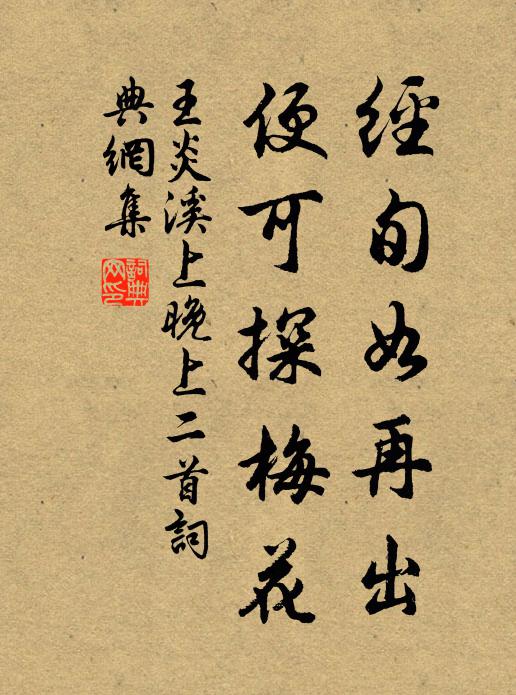 經旬如再出
便可探梅花
王炎溪上晚上二首詞
典網集
詞典網印